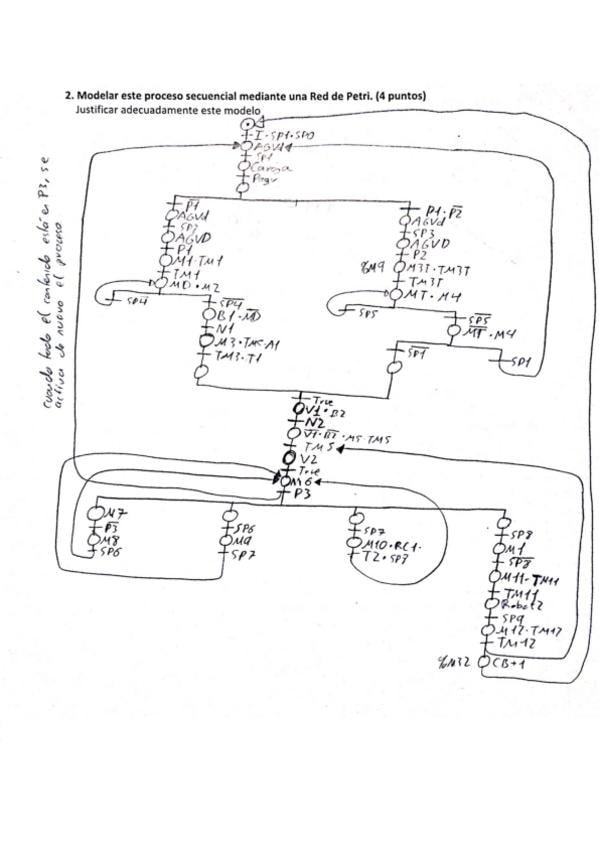 2. Modelar este proceso secuencial mediante una Red de Petri. (4 puntos)
Justificar adecuadamente este modelo
cuando todo el contenido está en P3, se
activa de nuevo el proceso
I·SP1·SP0
AGV1
SP1
Carga
P̅1̅
AGVd
SP2
AGVD
P1
M1·TM1
TM1
MD·M2
SP4
S̅P̅4̅
B1·M̅D̅
N1
TM3·T1
P1·P̅2̅
AGVd
SP3
AGVD
P2
%M9
M3T·TM3T
TM3T
MT·M4
SP5
S̅P̅5̅
M̅T̅·M4
S̅P̅1̅
SP1
True
V1·B2
N2
V̅1̅·B̅2̅·M5·TM5
TM5
V2
True
M6
P3
M7
P̅3̅
M8
SP6
SP6
M9
SP7
SP7
M10·RC1·
T2·SP8
SP8
M1
S̅P̅8̅
M11·TM11
TM11
Robot2
SP9
M12·TM12
TM12
%M32
CB+1